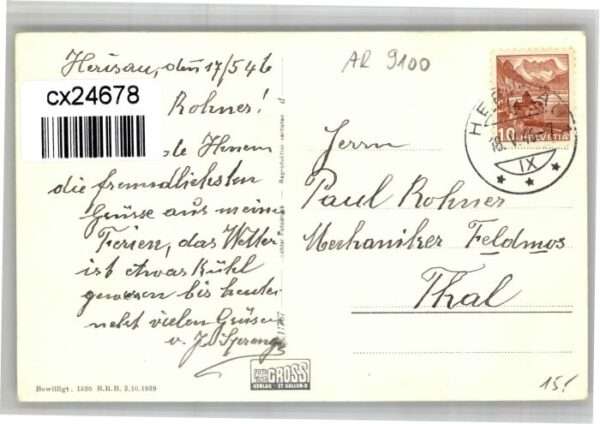 Herisau, den 17/5 46
AR 9100
cx24678
Rohner!
Ihnen
die freundlichsten
Grüsse aus meine
Ferien, das Wetter
ist etwas Kühl
gewesen bis heute
vielen Grüsen
v. J. Spreng
Herrn
Paul Rohner
Mechaniker Feldmos
Thal
10 HELVETIA
HE
18. V. 46
IX
FOTO GROSS
VERLAG ST. GALLEN
Bewilligt: 1520 B.R.B. 3.10.1939
15.-